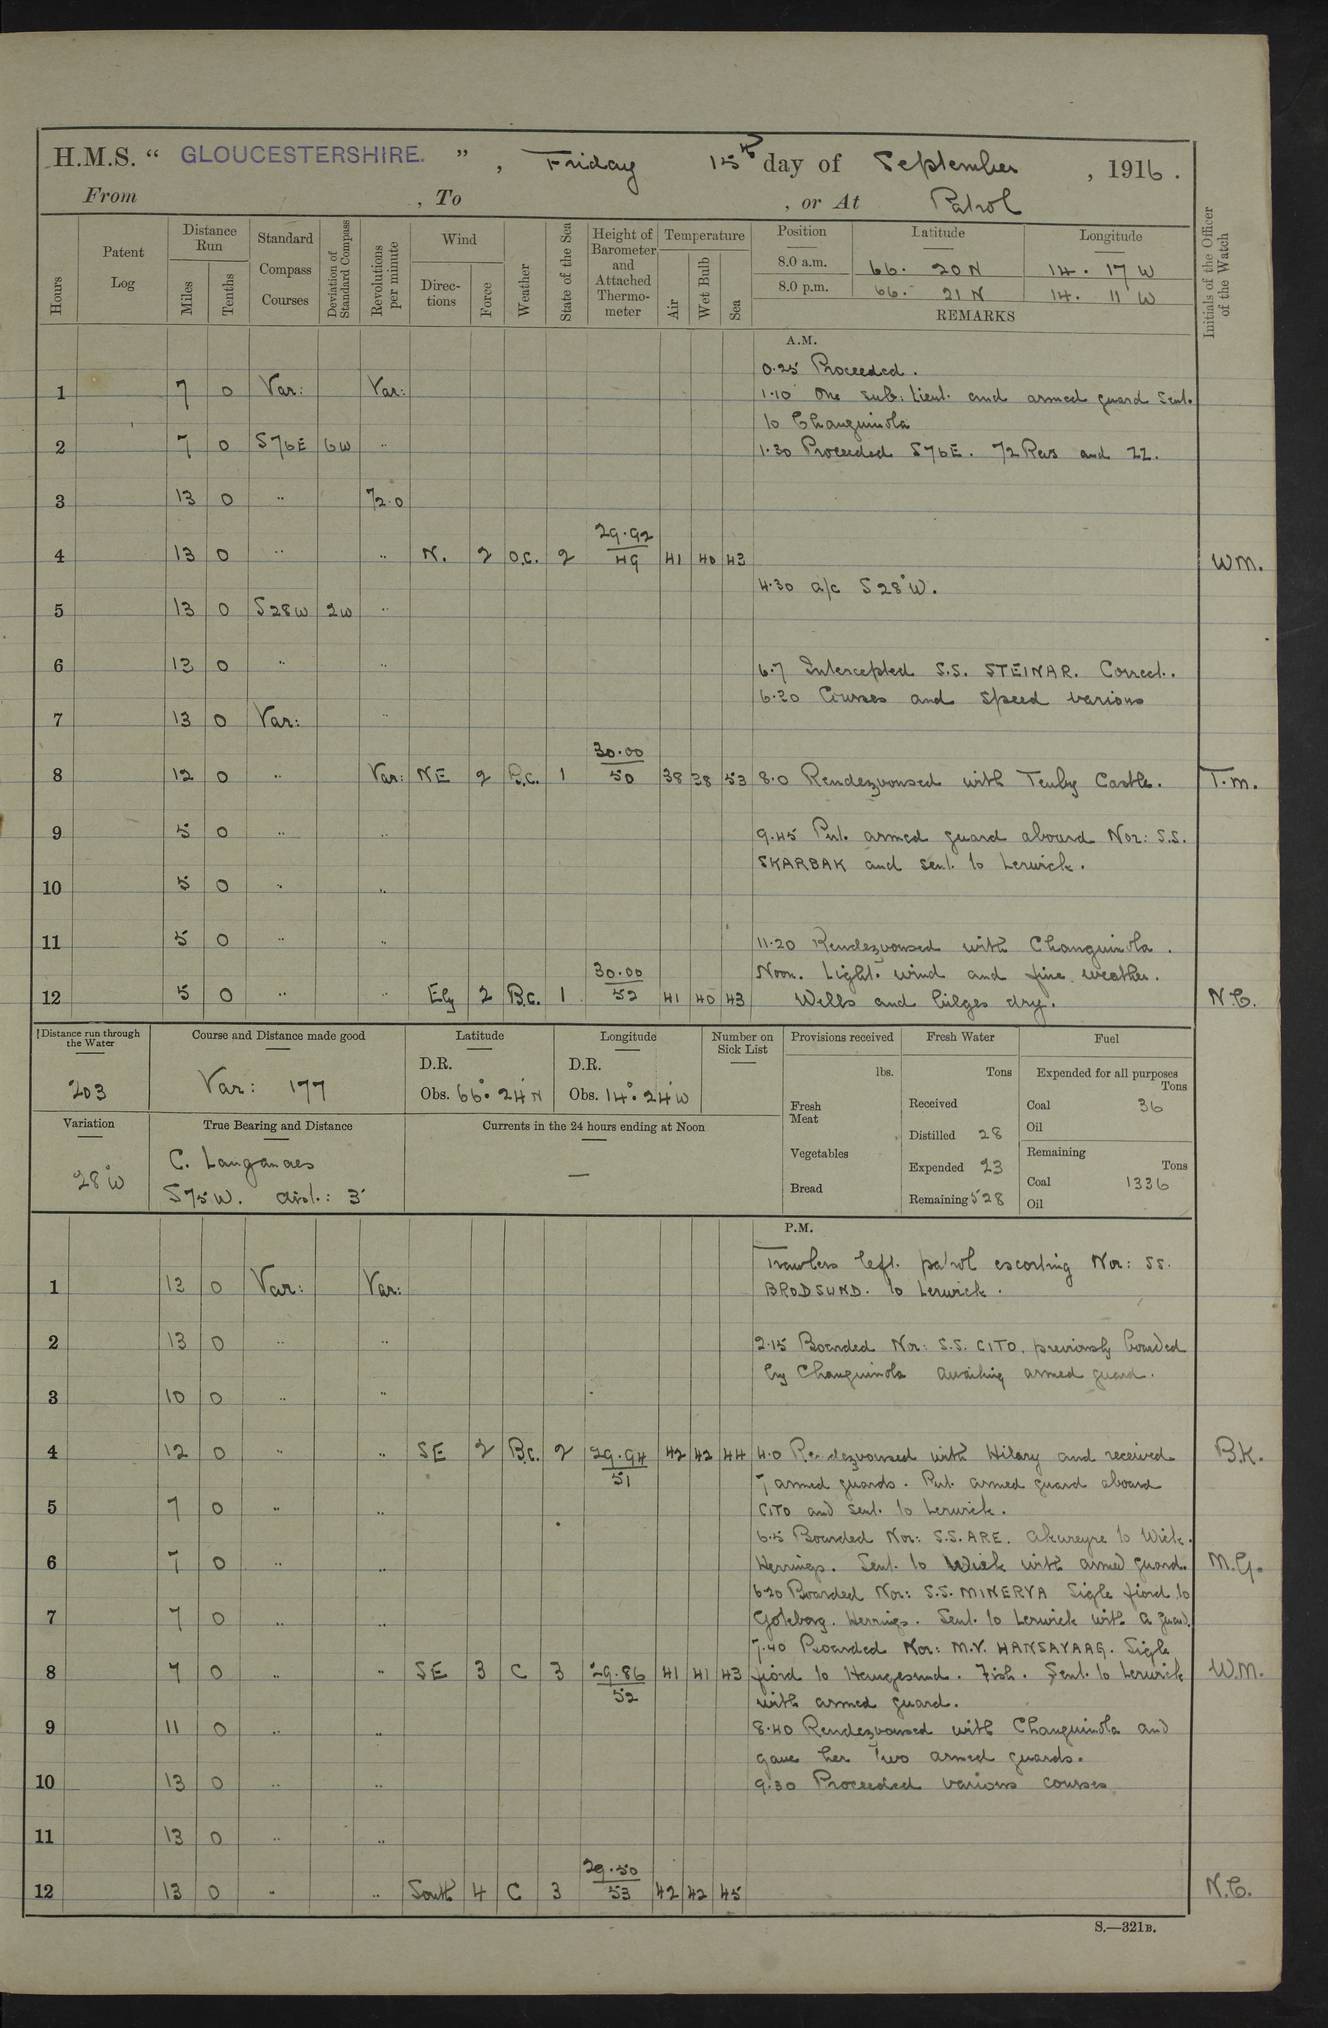 H.M.S. “ GLOUCESTERSHIRE. ” , Friday 15th day of September , 1916 .
From , To , or At Patrol
Hours
Patent Log
Distance Run
Miles
Tenths
Standard Compass Courses
Deviation of Standard Compass
Revolutions per minute
Wind
Direc-tions
Force
Weather
State of the Sea
Height of Barometer and Attached Thermo-meter
Temperature
Air
Wet Bulb
Sea
Position Latitude Longitude
8.0 a.m. 66. 20 N 14. 17 W
8.0 p.m. 66. 21 N 14. 11 W
REMARKS
Initials of the Officer of the Watch
A.M.
0.25 Proceeded.
1 7 0 Var: Var: 1.10 One sub: Lieut. and armed guard sent.
to Changuinola
2 7 0 S76E 6W " 1.30 Proceeded S76E. 72 Revs and ZZ.
3 13 0 " 72.0
29.92
4 13 0 " " N. 2 O.C. 2 49 41 40 43 WM.
4.30 a/c S28°W.
5 13 0 S28W 2W "
6 13 0 " " 6.7 Intercepted S.S. STEINAR. Correct.
6.20 Courses and Speed various
7 13 0 Var: "
30.00
8 12 0 " Var: NE 2 B.C. 1 50 38 38 53 8.0 Rendezvoused with Tenby Castle. T.m.
9 5 0 " " 9.45 Put armed guard aboard Nor: S.S.
SKARBAK and sent to Lerwick.
10 5 0 " "
11 5 0 " " 11.20 Rendezvoused with Changuinola.
30.00 Noon. Light wind and fine weather.
12 5 0 " " Ely 2 B.C. 1 52 41 40 43 Wells and bilges dry. N.C.
Distance run through the Water
203
Course and Distance made good
Var: 177
Latitude
D.R.
Obs. 66° 24' N
Longitude
D.R.
Obs. 14° 24' W
Number on Sick List
Provisions received
lbs.
Fresh Meat
Vegetables
Bread
Fresh Water
Tons
Received
Distilled 28
Expended 23
Remaining 528
Fuel
Expended for all purposes
Tons
Coal 36
Oil
Remaining
Tons
Coal 1336
Oil
Variation
28°W
True Bearing and Distance
C. Langanaes
S75W. dist.: 3'
Currents in the 24 hours ending at Noon
—
P.M.
Trawlers left patrol escorting Nor: SS.
1 13 0 Var: Var: BRODSUND. to Lerwick.
2 13 0 " " 2.15 Boarded Nor: S.S. CITO. previously boarded
by Changuinola awaiting armed guard.
3 10 0 " "
4 12 0 " " SE 2 B.C. 2 29.94 42 42 44 4.0 Rendezvoused with Hilary and received B.K.
51 7 armed guards. Put armed guard aboard
5 7 0 " " CITO and sent to Lerwick.
6.5 Boarded Nor: S.S. ARE. Akureyre to Wick.
6 7 0 " " Herrings. Sent to Wick with armed guard. M.G.
6.20 Boarded Nor: S.S. MINERVA Sigle fiord to
7 7 0 " " Goteborg. Herrings. Sent to Lerwick with a guard.
7.40 Boarded Nor: M.V. HANSAVAAG. Sigle
8 7 0 " " SE 3 C 3 29.86 41 41 43 fiord to Haugesund. Fish. Sent to Lerwick W.M.
52 with armed guard.
9 11 0 " " 8.40 Rendezvoused with Changuinola and
gave her two armed guards.
10 13 0 " " 9.30 Proceeded various courses
11 13 0 " "
29.50
12 13 0 " " South 4 C 3 53 42 42 45 N.C.
S.—321B.